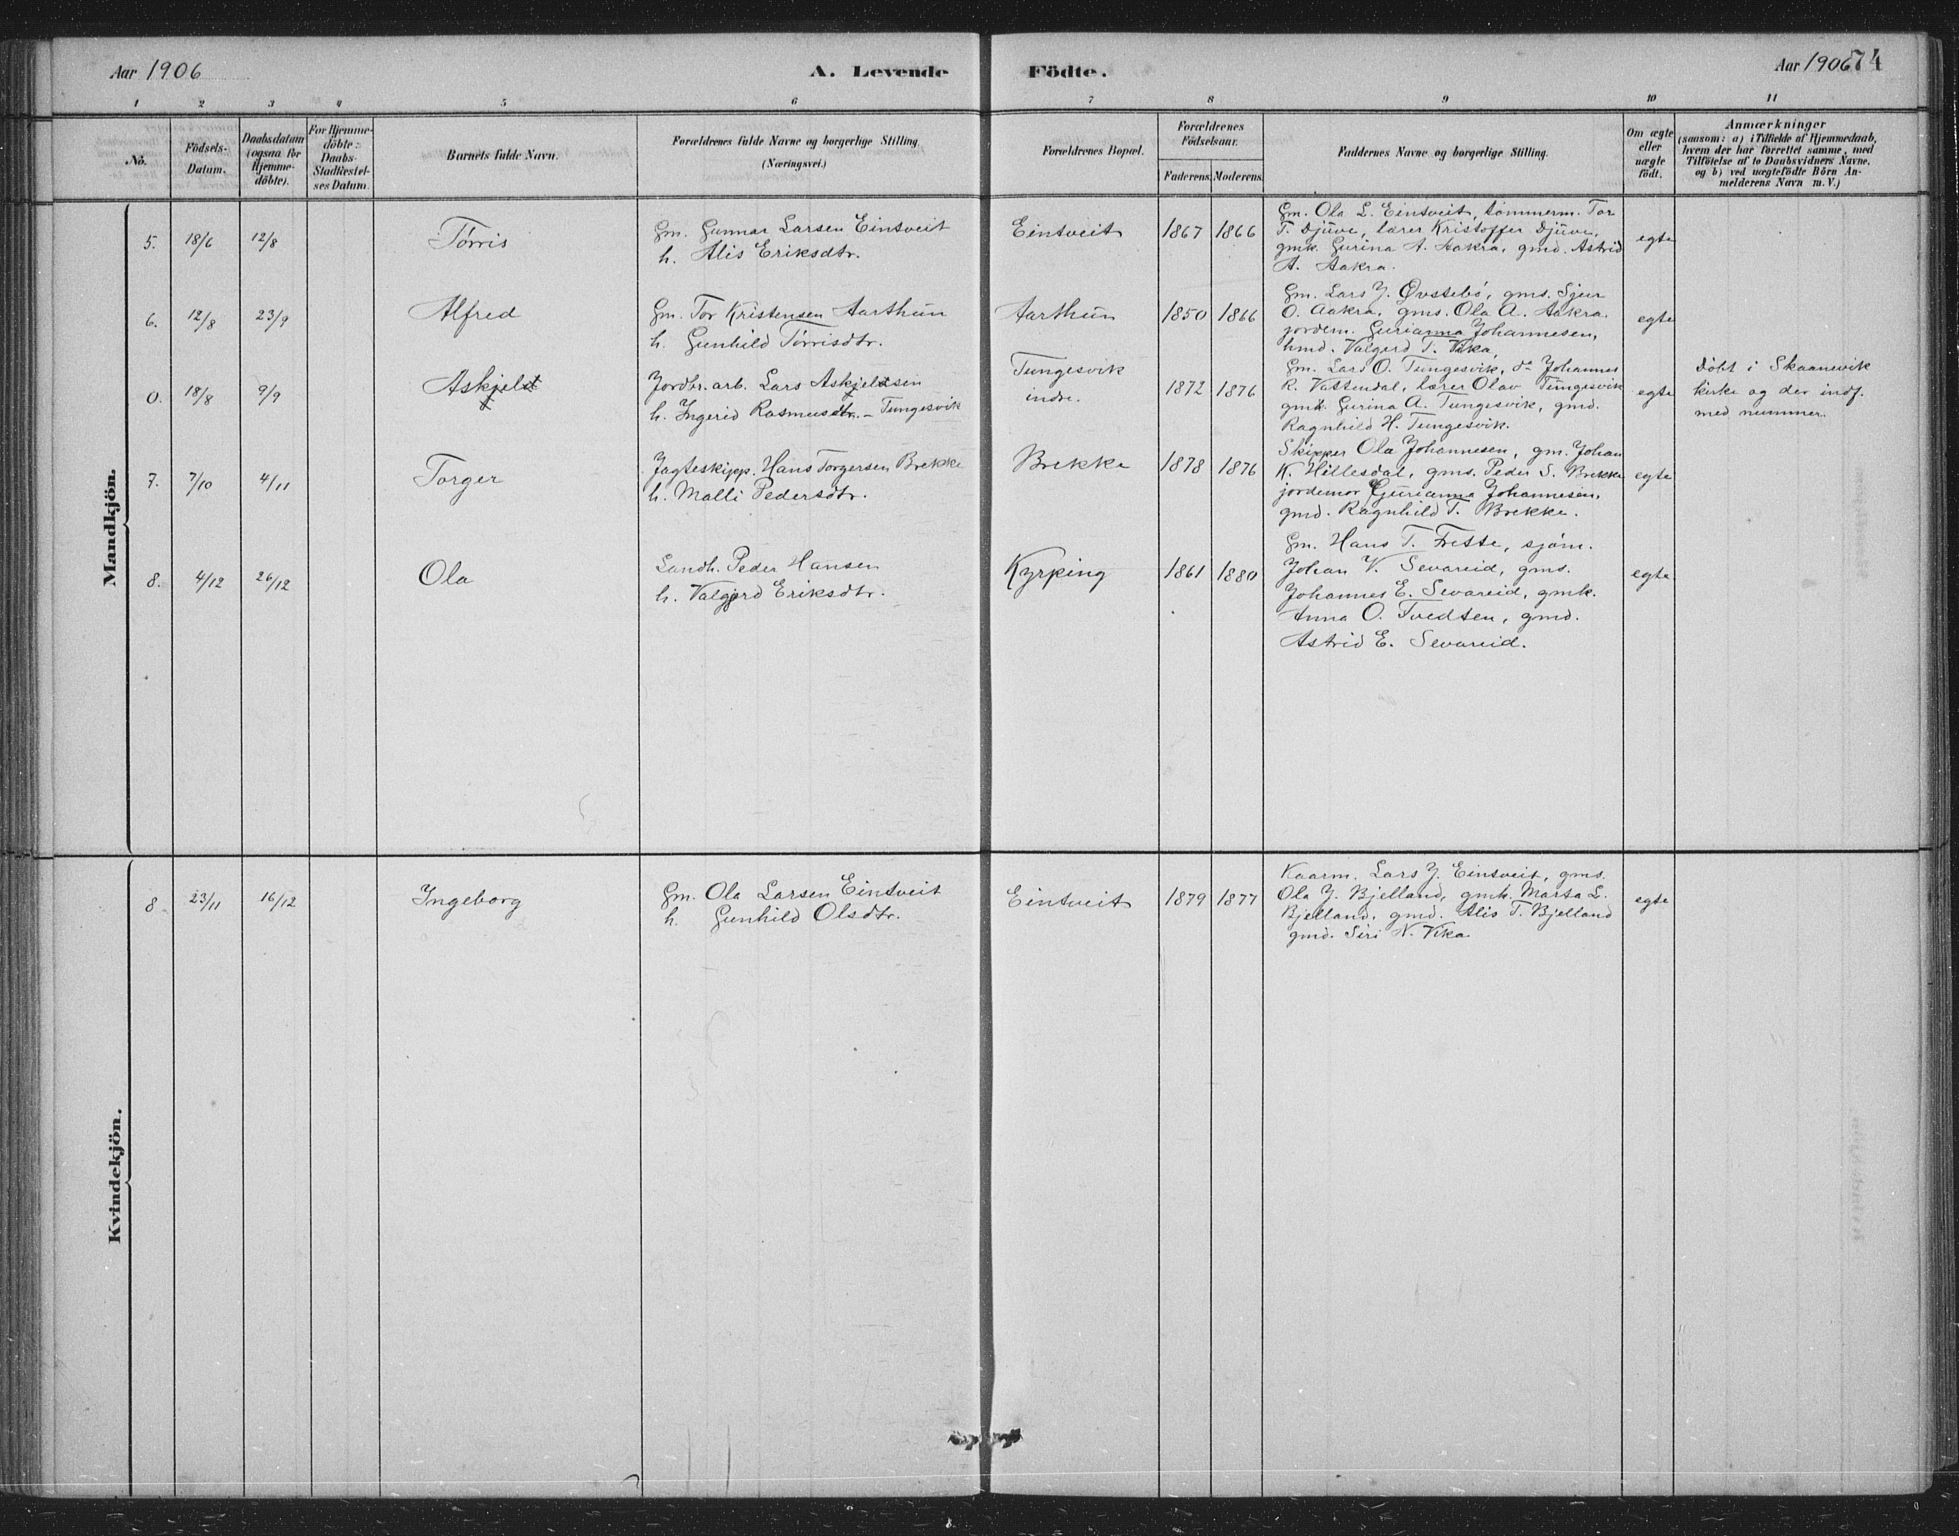 Aar 1906
A. Levende
Födte.
Aar 1906
74
1 2 3 4 5 6 7 8 9 10 11
No.
Födsels-
Datum.
Daabsdatum
(ogsaa for
Hjemme-
döbte).
For Hjemme-
döbte:
Daabs-
Stadfæstel-
ses Datum.
Barnets fulde Navn.
Forældrenes fulde Navne og borgerlige Stilling
(Næringsvei.)
Forældrenes Bopæl.
Forældrenes
Födselsaar.
Faderens. Moderens.
Faddernes Navne og borgerlige Stilling.
Om ægte
eller
uægte
födt.
Anmærkninger
(saasom: a) i Tilfælde af Hjemmedaab,
hvem der har forrettet samme, med
Tilföielse af to Daabsvidners Navne,
og b) ved uægtefödte Börn An-
melderens Navn m. V.)
Mandkjön.
5. 18/6 12/8 Tørris
Gm. Gunnar Larsen Eintveit
h. Alis Eriksdtr.
Eintveit 1867 1866
Gm. Ola L. Eintveit, tømmerm. Tor
T. Djuve, lærer Kristoffer Djuve,
gmk. Gurina A. Aakra, gmd. Astrid
A. Aakra.
egte
6. 12/8 23/9 Alfred
Gm. Tor Kristensen Aarthun
h. Gunhild Tørrisdtr.
Aarthun 1850 1866
Gm. Lars J. Øvstebö, gms. Sjur
O. Aakra, gms. Ola A. Aakra,
jordem. Gurianna Johannesen,
hmd. Valgerd T. Vika,
egte
0. 18/8 9/9 Askjelt
Jordbr. arb. Lars Askjeldsen
h. Ingerid Rasmusdtr. - Tungesvik
Tungesvik
indre.
1872 1876
Gm. Lars O. Tungesvik, do Johannes
R. Vattendal, lærer Olav Tungesvik
gmk. Gurina A. Tungesvik, gmd.
Ragnhild H. Tungesvik.
egte
Döbt i Skaanevik
kirke og der indf.
med nummer.
7. 7/10 4/11 Torger
Jagteskipp. Hans Torgersen Brekke
h. Malli Pedersdtr.
Brekke 1878 1876
Skipper Ola Johannesen, gm. Johan
K. Hillesdal, gms. Peder S. Brekke
jordemor Gurianna Johannesen,
gmd. Ragnhild T. Brekke.
egte
8. 4/12 26/12 Ola
Landh. Peder Hansen
h. Valgjerd Eriksdtr.
Kyrping 1861 1880
Gm. Hans T. Frette, sjøm.
Johan V. Sevareid, gms.
Johannes E. Sevareid, gmk.
Anna O. Tvedten, gmd.
Astrid E. Sevareid.
egte
Kvindekjön.
8 23/11 16/12 Ingeborg
Gm. Ola Larsen Eintveit
h. Gunhild Olsdtr.
Eintveit 1879 1877
Kaarm. Lars J. Eintveit, gms.
Ola J. Bjelland, gmk. Marta L.
Bjelland, gmd. Alis T. Bjelland
gmd. Siri N. Vika
egte